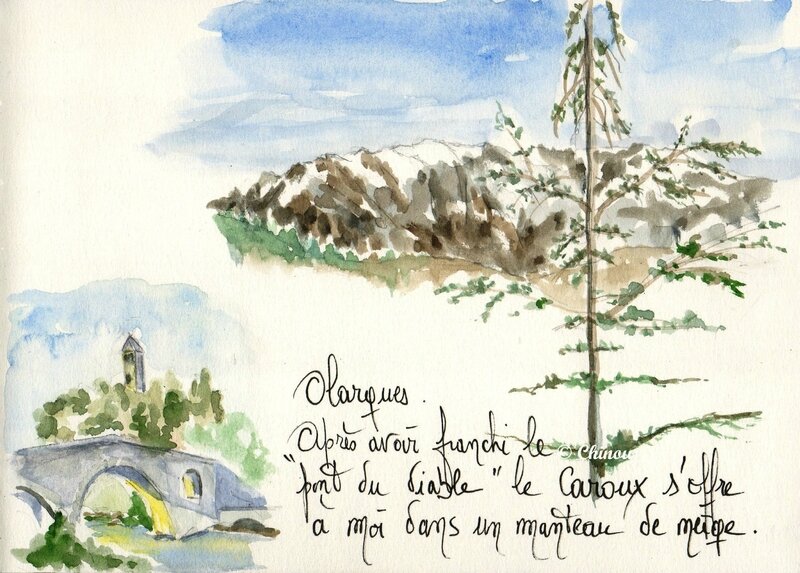 Olargues.
Après avoir franchi le
"pont du diable" le Caroux s'offre
à moi dans un manteau de neige.
© Chinou